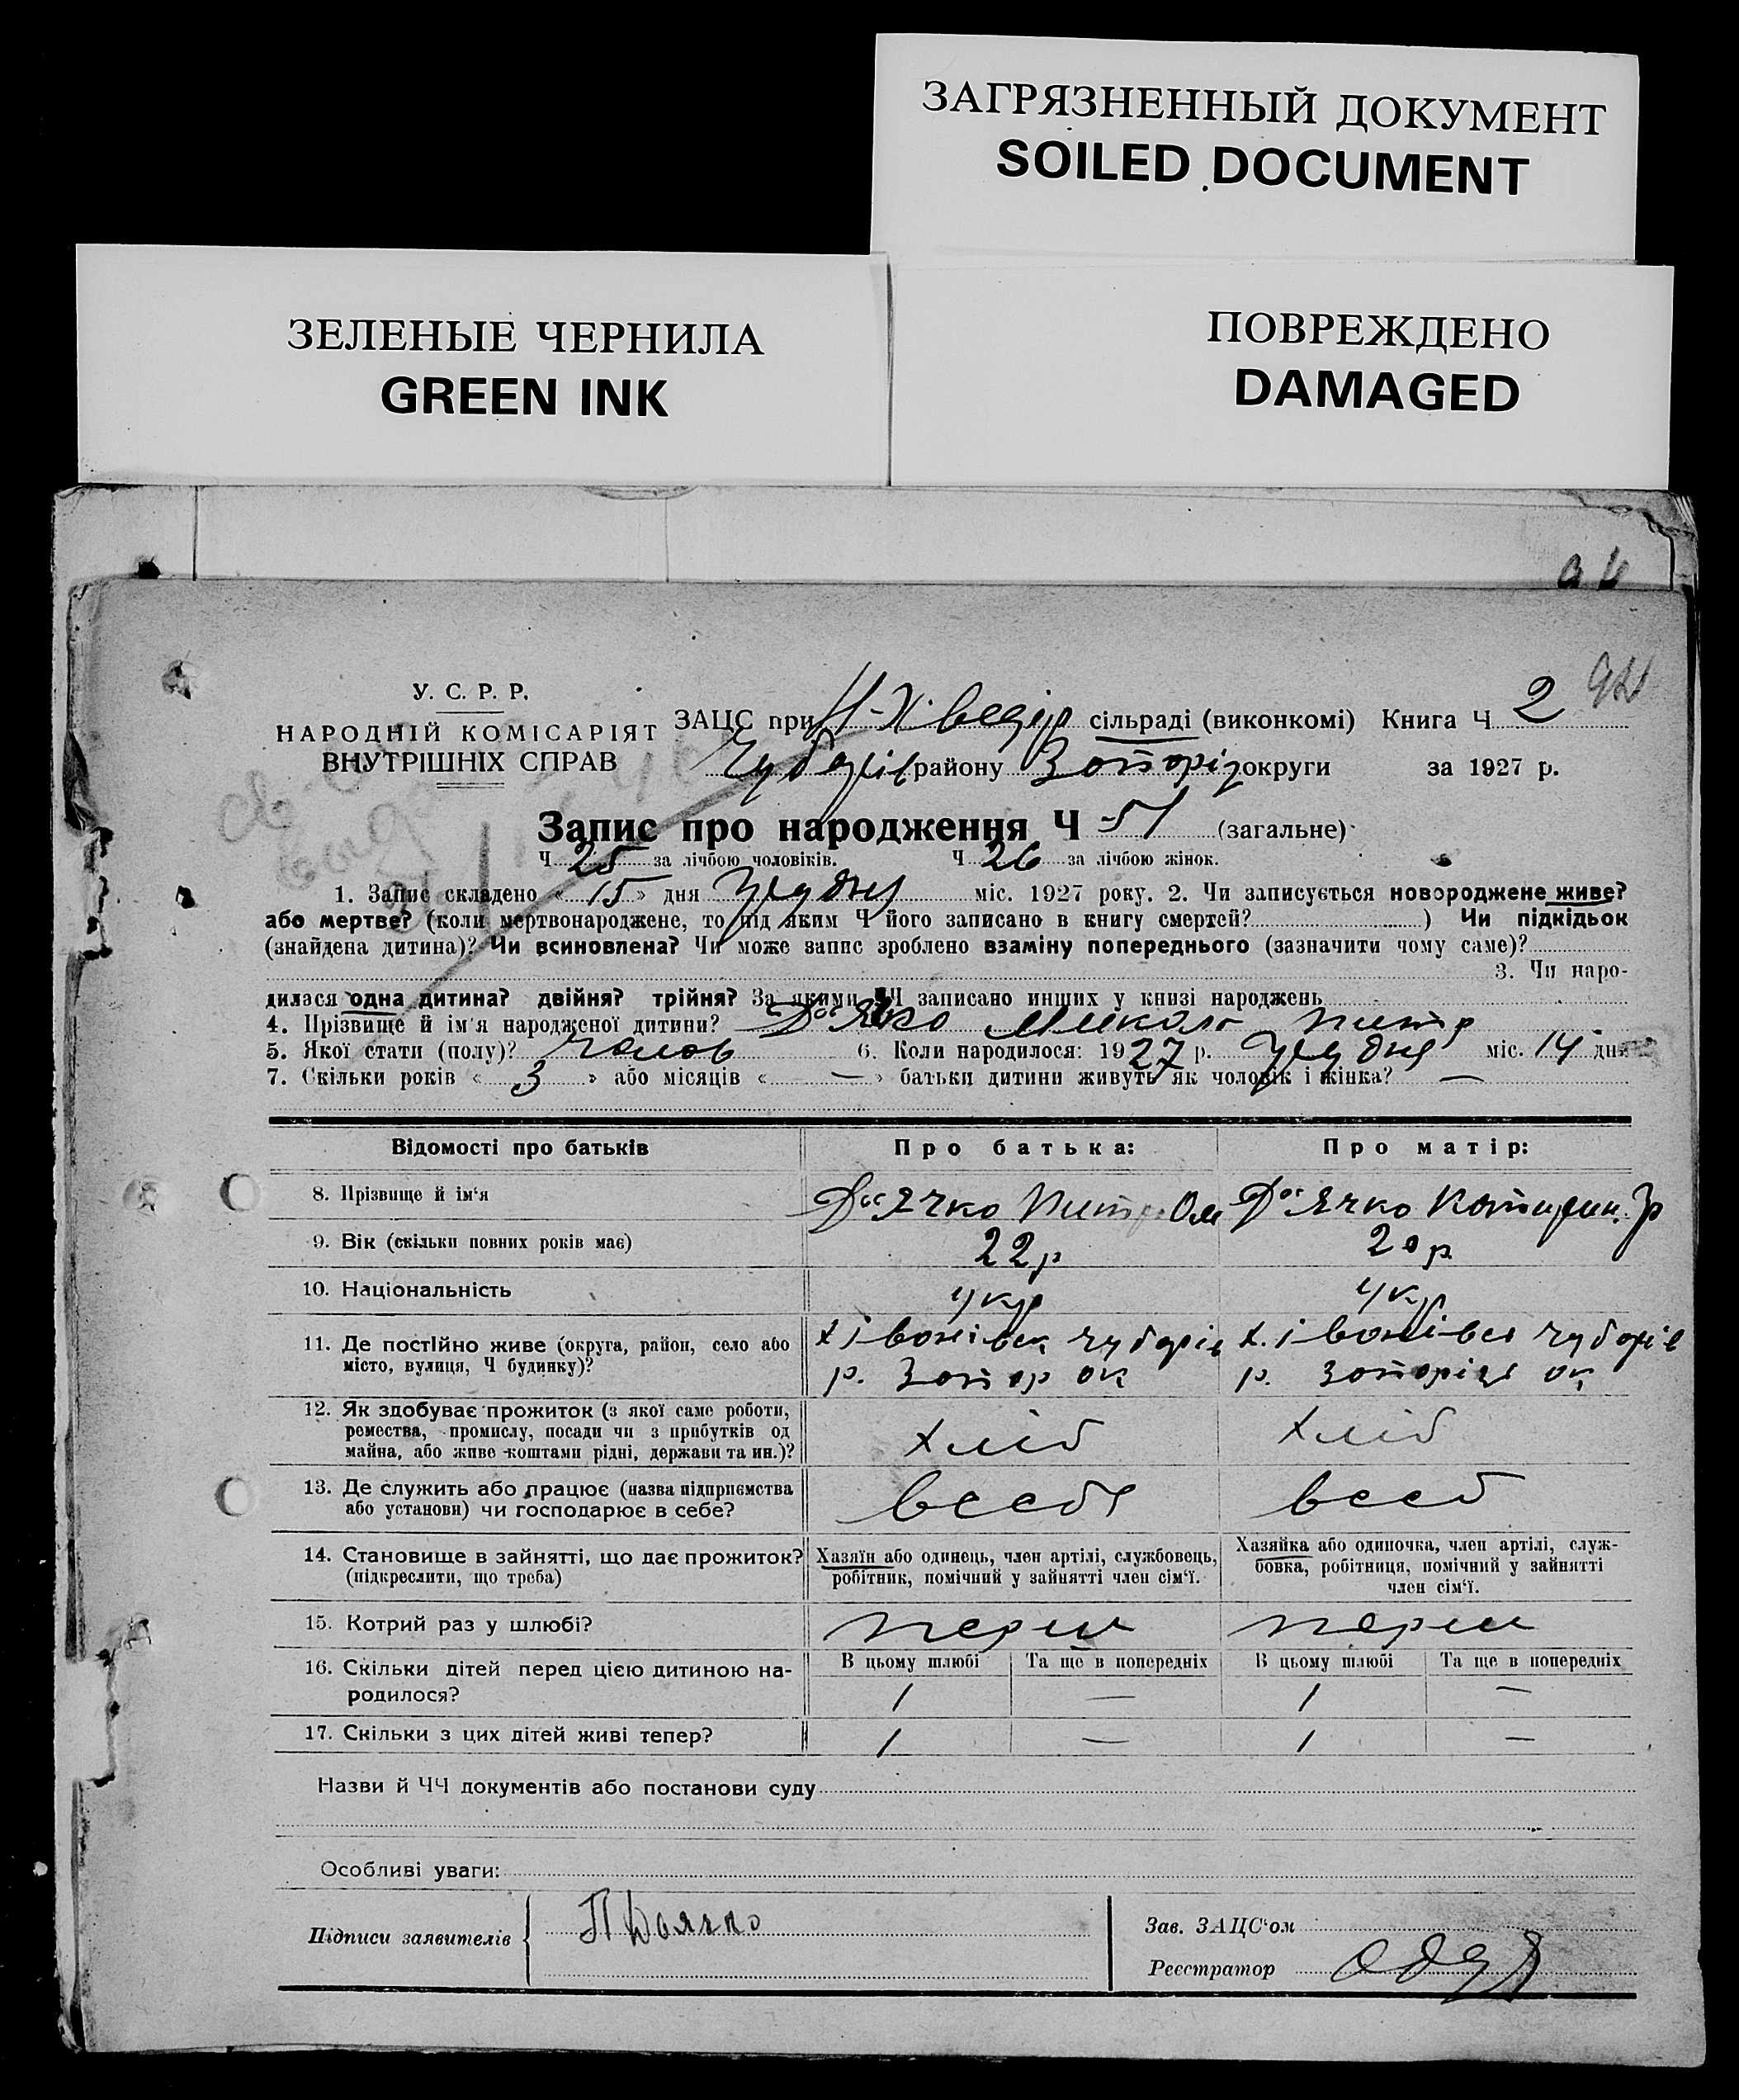 ЗАГРЯЗНЕННЫЙ ДОКУМЕНТ
SOILED DOCUMENT
ЗЕЛЕНЫЕ ЧЕРНИЛА
GREEN INK
ПОВРЕЖДЕНО
DAMAGED
У. С. Р. Р.
НАРОДНІЙ КОМІСАРІЯТ
ВНУТРІШНІХ СПРАВ
ЗАЦС при сільраді (виконкомі) Книга Ч 2
Чубарів району Запоріз округи за 1927 р.
Запис про народження Ч 51 (загальне)
Ч 25 за лічбою чоловіків. Ч 26 за лічбою жінок.
1. Запис складено « 15 » дня Грудня міс. 1927 року. 2. Чи записується новороджене живе?
або мертве? (коли мертвонароджене, то під яким Ч його записано в книгу смертей? ) Чи підкідьок
(знайдена дитина)? Чи всиновлена? Чи може запис зроблено взаміну попереднього (зазначити чому саме)?
3. Чи наро-
дилася одна дитина? двійня? трійня? За якими ЧЧ записано инших у книзі народжень
4. Прізвище й ім'я народженої дитини? Микола Питр
5. Якої стати (полу)? чолов 6. Коли народилося: 1927 р. Грудня міс. 14 дня
7. Скільки років « 3 » або місяців « — » батьки дитини живуть як чоловік і жінка? —
Відомості про батьків Про батька: Про матір:
8. Прізвище й ім'я
9. Вік (скільки повних років має) 22 р 20 р
10. Національність укр укр
11. Де постійно живе (округа, район, село або х івонівка чубарів х. івонівка чубарів
місто, вулиця, Ч будинку)? р. Запор ок р. запоріз ок
12. Як здобуває прожиток (з якої саме роботи,
ремества, промислу, посади чи з прибутків од
майна, або живе коштами рідні, держави та ин.)? хліб хліб
13. Де служить або працює (назва підприємства
або установи) чи господарює в себе? всебе всеб
14. Становище в зайнятті, що дає прожиток? Хазяїн або одинець, член артілі, службовець, Хазяйка або одиночка, член артілі, служ-
(підкреслити, що треба) робітник, помічний у зайнятті член сім'ї. бовка, робітниця, помічний у зайнятті
член сім'ї.
15. Котрий раз у шлюбі? перш перш
16. Скільки дітей перед цією дитиною на- В цьому шлюбі Та ще в попередніх В цьому шлюбі Та ще в попередніх
родилося? 1 — 1 —
17. Скільки з цих дітей живі тепер? 1 — 1 —
Назви й ЧЧ документів або постанови суду
Особливі уваги:
Підписи заявителів П Доячко Зав. ЗАЦС'ом
Реєстратор